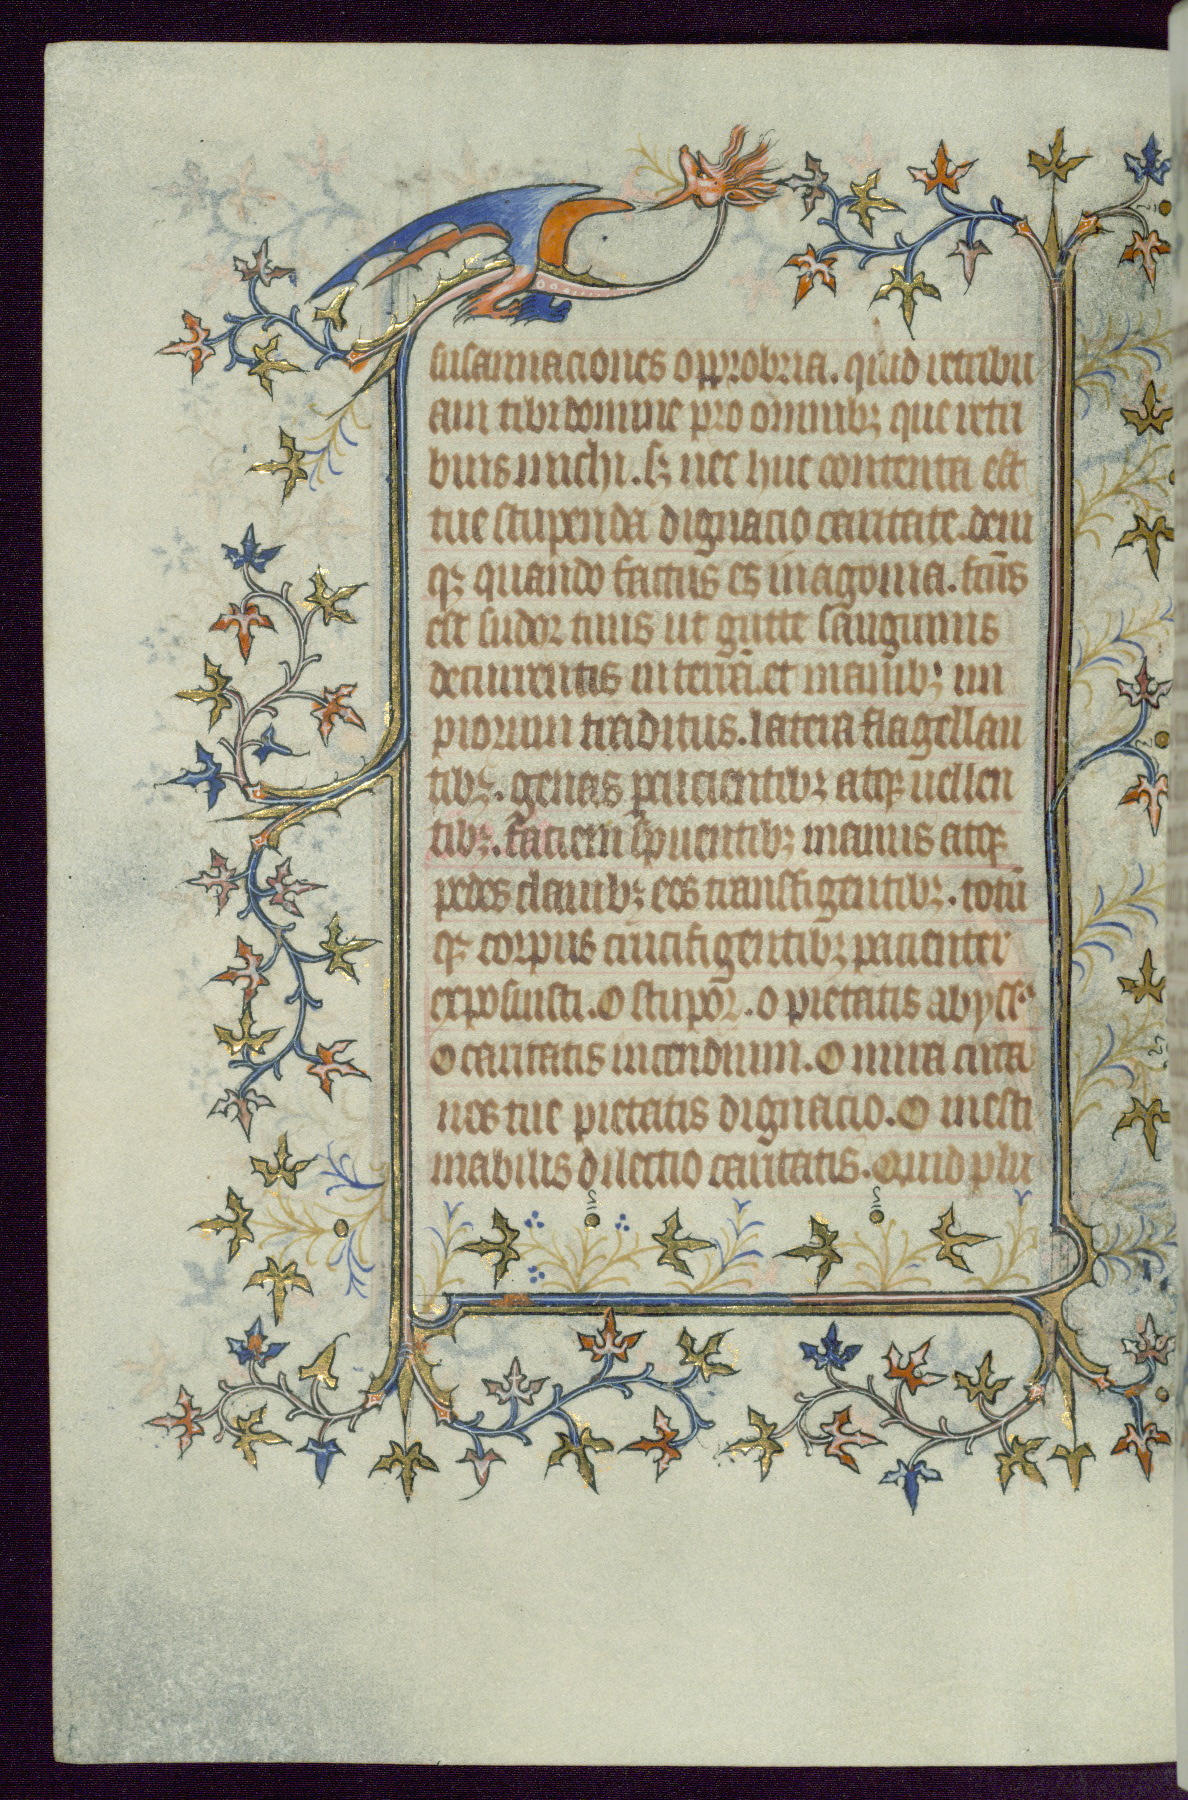 susannaciones opprobria. quid retribu
am tibi domine pro omnibꝫ que retri
buis michi. sꝫ nec huc contenta est
tue stupenda dignacio caritate. deni
qꝫ quando factus es in agonia. fcūs
est sudor tuus ut gutte sanguinis
decurrentis in terrā. et manibꝫ im
piorum traditus. latera flagellan
tibꝫ. genas percucientibꝫ atqꝫ uellen
tibꝫ. faciem spuentibꝫ manus atqꝫ
pedes clauibꝫ eos transfigentibꝫ. totū
qꝫ corpus crucifigentibꝫ pacienter
exposuisti. O stupor. o pietatis abysse
O caritatis incendium. O mira circa
nos tue pietatis dignacio. O inesti
mabilis dilectio caritatis. Quid plu